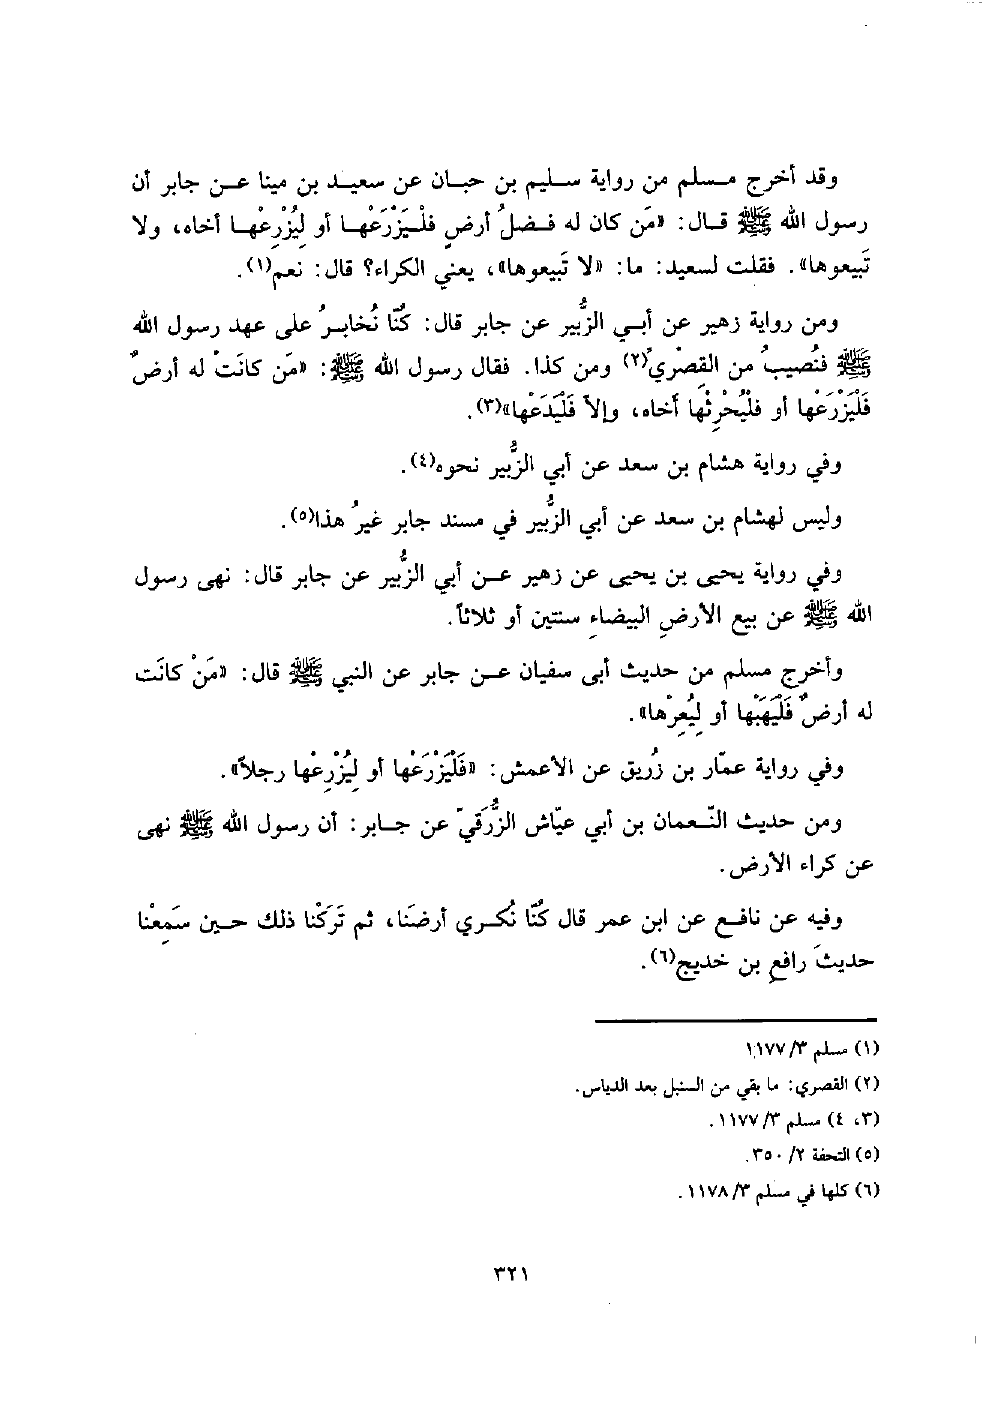 وقد أخرج مسلم من رواية سليم بن حبان عن سعيد بن مينا عن جابر أن
رسول الله ﷺ قال: «مَن كان له فضلُ أرضٍ فلْيَزْرَعْها أو لِيُزْرِعْها أخاه، ولا
تَبيعوها». فقلت لسعيد: ما: «لا تَبيعوها»، يعني الكراء؟ قال: نعم(١).
ومن رواية زهير عن أبي الزُّبير عن جابر قال: كُنّا نُخابرُ على عهد رسول الله
ﷺ فنُصيبُ من القِصْريّ(٢) ومن كذا. فقال رسول الله ﷺ: «مَن كانَتْ له أرضٌ
فَلْيَزْرَعْها أو فلْيُحْرِثْها أخاه، وإلاّ فَلْيَدَعْها»(٣).
وفي رواية هشام بن سعد عن أبي الزُّبير نحوه(٤).
وليس لهشام بن سعد عن أبي الزُّبير في مسند جابر غيرُ هذا(٥).
وفي رواية يحيى بن يحيى عن زهير عن أبي الزُّبير عن جابر قال: نهى رسول
الله ﷺ عن بيع الأرضِ البيضاءِ سنتين أو ثلاثاً.
وأخرج مسلم من حديث أبى سفيان عن جابر عن النبي ﷺ قال: «مَنْ كانَت
له أرضٌ فَلْيَهَبْها أو لِيُعِرْها».
وفي رواية عمّار بن زُريق عن الأعمش: «فَلْيَزْرَعْها أو لِيُزْرِعْها رجلاً».
ومن حديث النّعمان بن أبي عيّاش الزُّرَقيّ عن جابر: أن رسول الله ﷺ نهى
عن كراء الأرض.
وفيه عن نافع عن ابن عمر قال كُنّا نُكري أرضَنا، ثم تَرَكْنا ذلك حين سَمِعْنا
حديثَ رافعِ بن خديج(٦).
(١) مسلم ٣/ ١١٧٧
(٢) القصري: ما بقي من السنبل بعد الدياس.
(٣، ٤) مسلم ٣/ ١١٧٧.
(٥) التحفة ٢/ ٣٥٠.
(٦) كلها في مسلم ٣/ ١١٧٨.
٣٢١